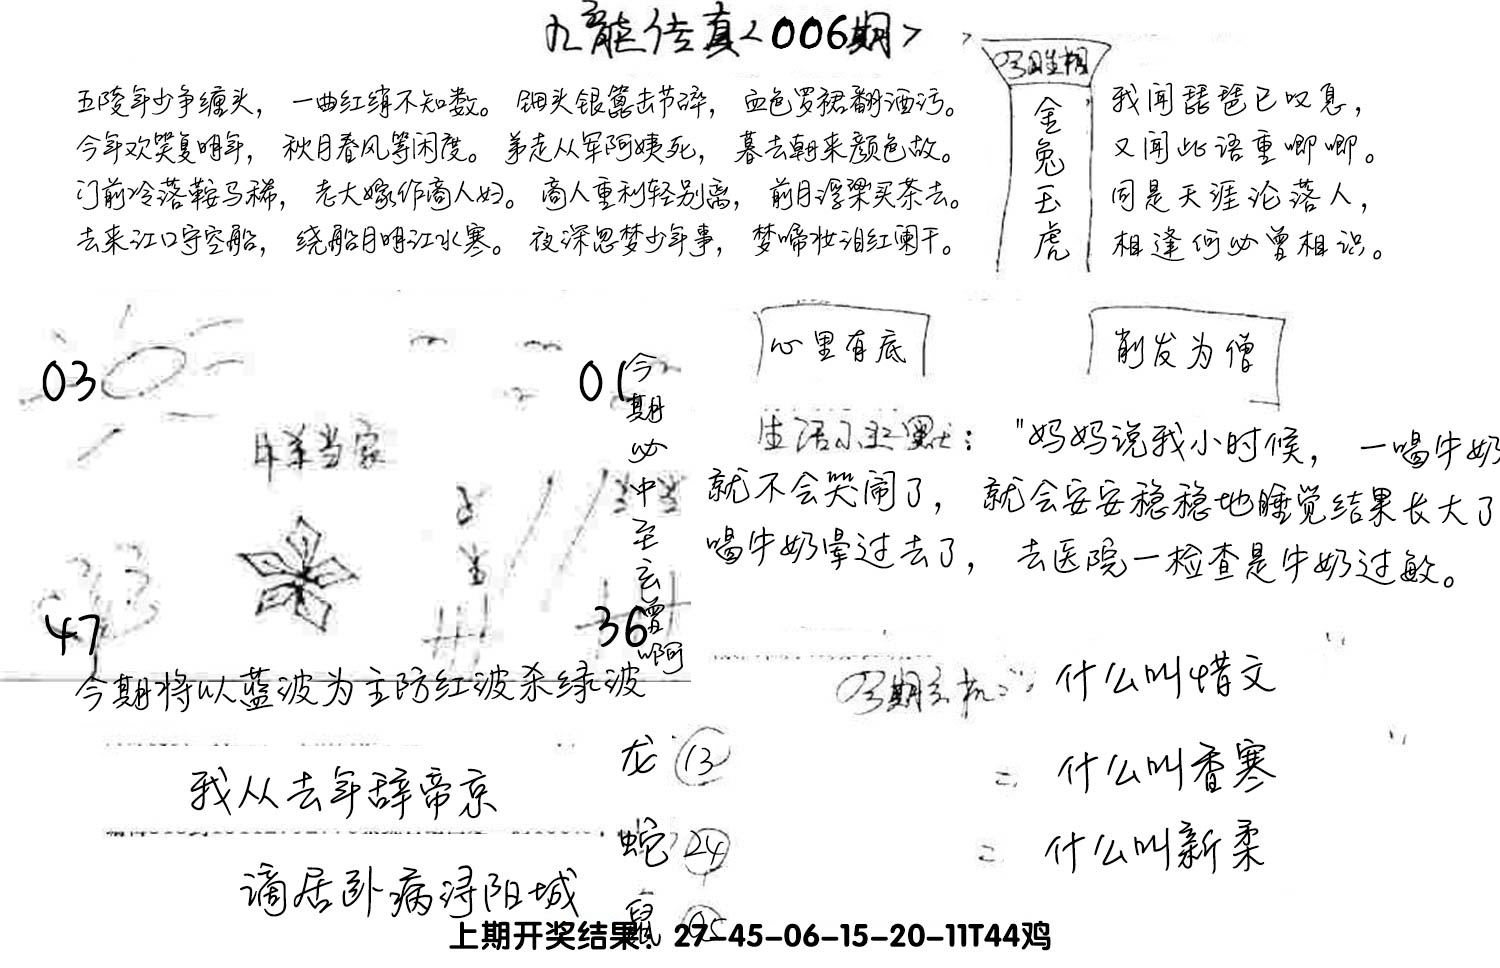 九龙传真<006期>
五陵年少争缠头，一曲红绡不知数。钿头银篦击节碎，血色罗裙翻酒污。
今年欢笑复明年，秋月春风等闲度。弟走从军阿姨死，暮去朝来颜色故。
门前冷落鞍马稀，老大嫁作商人妇。商人重利轻别离，前月浮梁买茶去。
去来江口守空船，绕船月明江水寒。夜深忽梦少年事，梦啼妆泪红阑干。
金兔玉虎
我闻琵琶已叹息，
又闻此语重唧唧。
同是天涯沦落人，
相逢何必曾相识。
03
01
47
36
今期必中至玄曾啊
今期将以蓝波为主防红波杀绿波
心里有底
削发为僧
生活小幽默："妈妈说我小时候，一喝牛奶
就不会哭闹了，就会安安稳稳地睡觉结果长大了
喝牛奶晕过去了，去医院一检查是牛奶过敏。
什么叫惜文
二 什么叫香寒
二 什么叫新柔
我从去年辞帝京
谪居卧病浔阳城
龙 13
蛇 24
鼠 05
上期开奖结果：27-45-06-15-20-11T44鸡